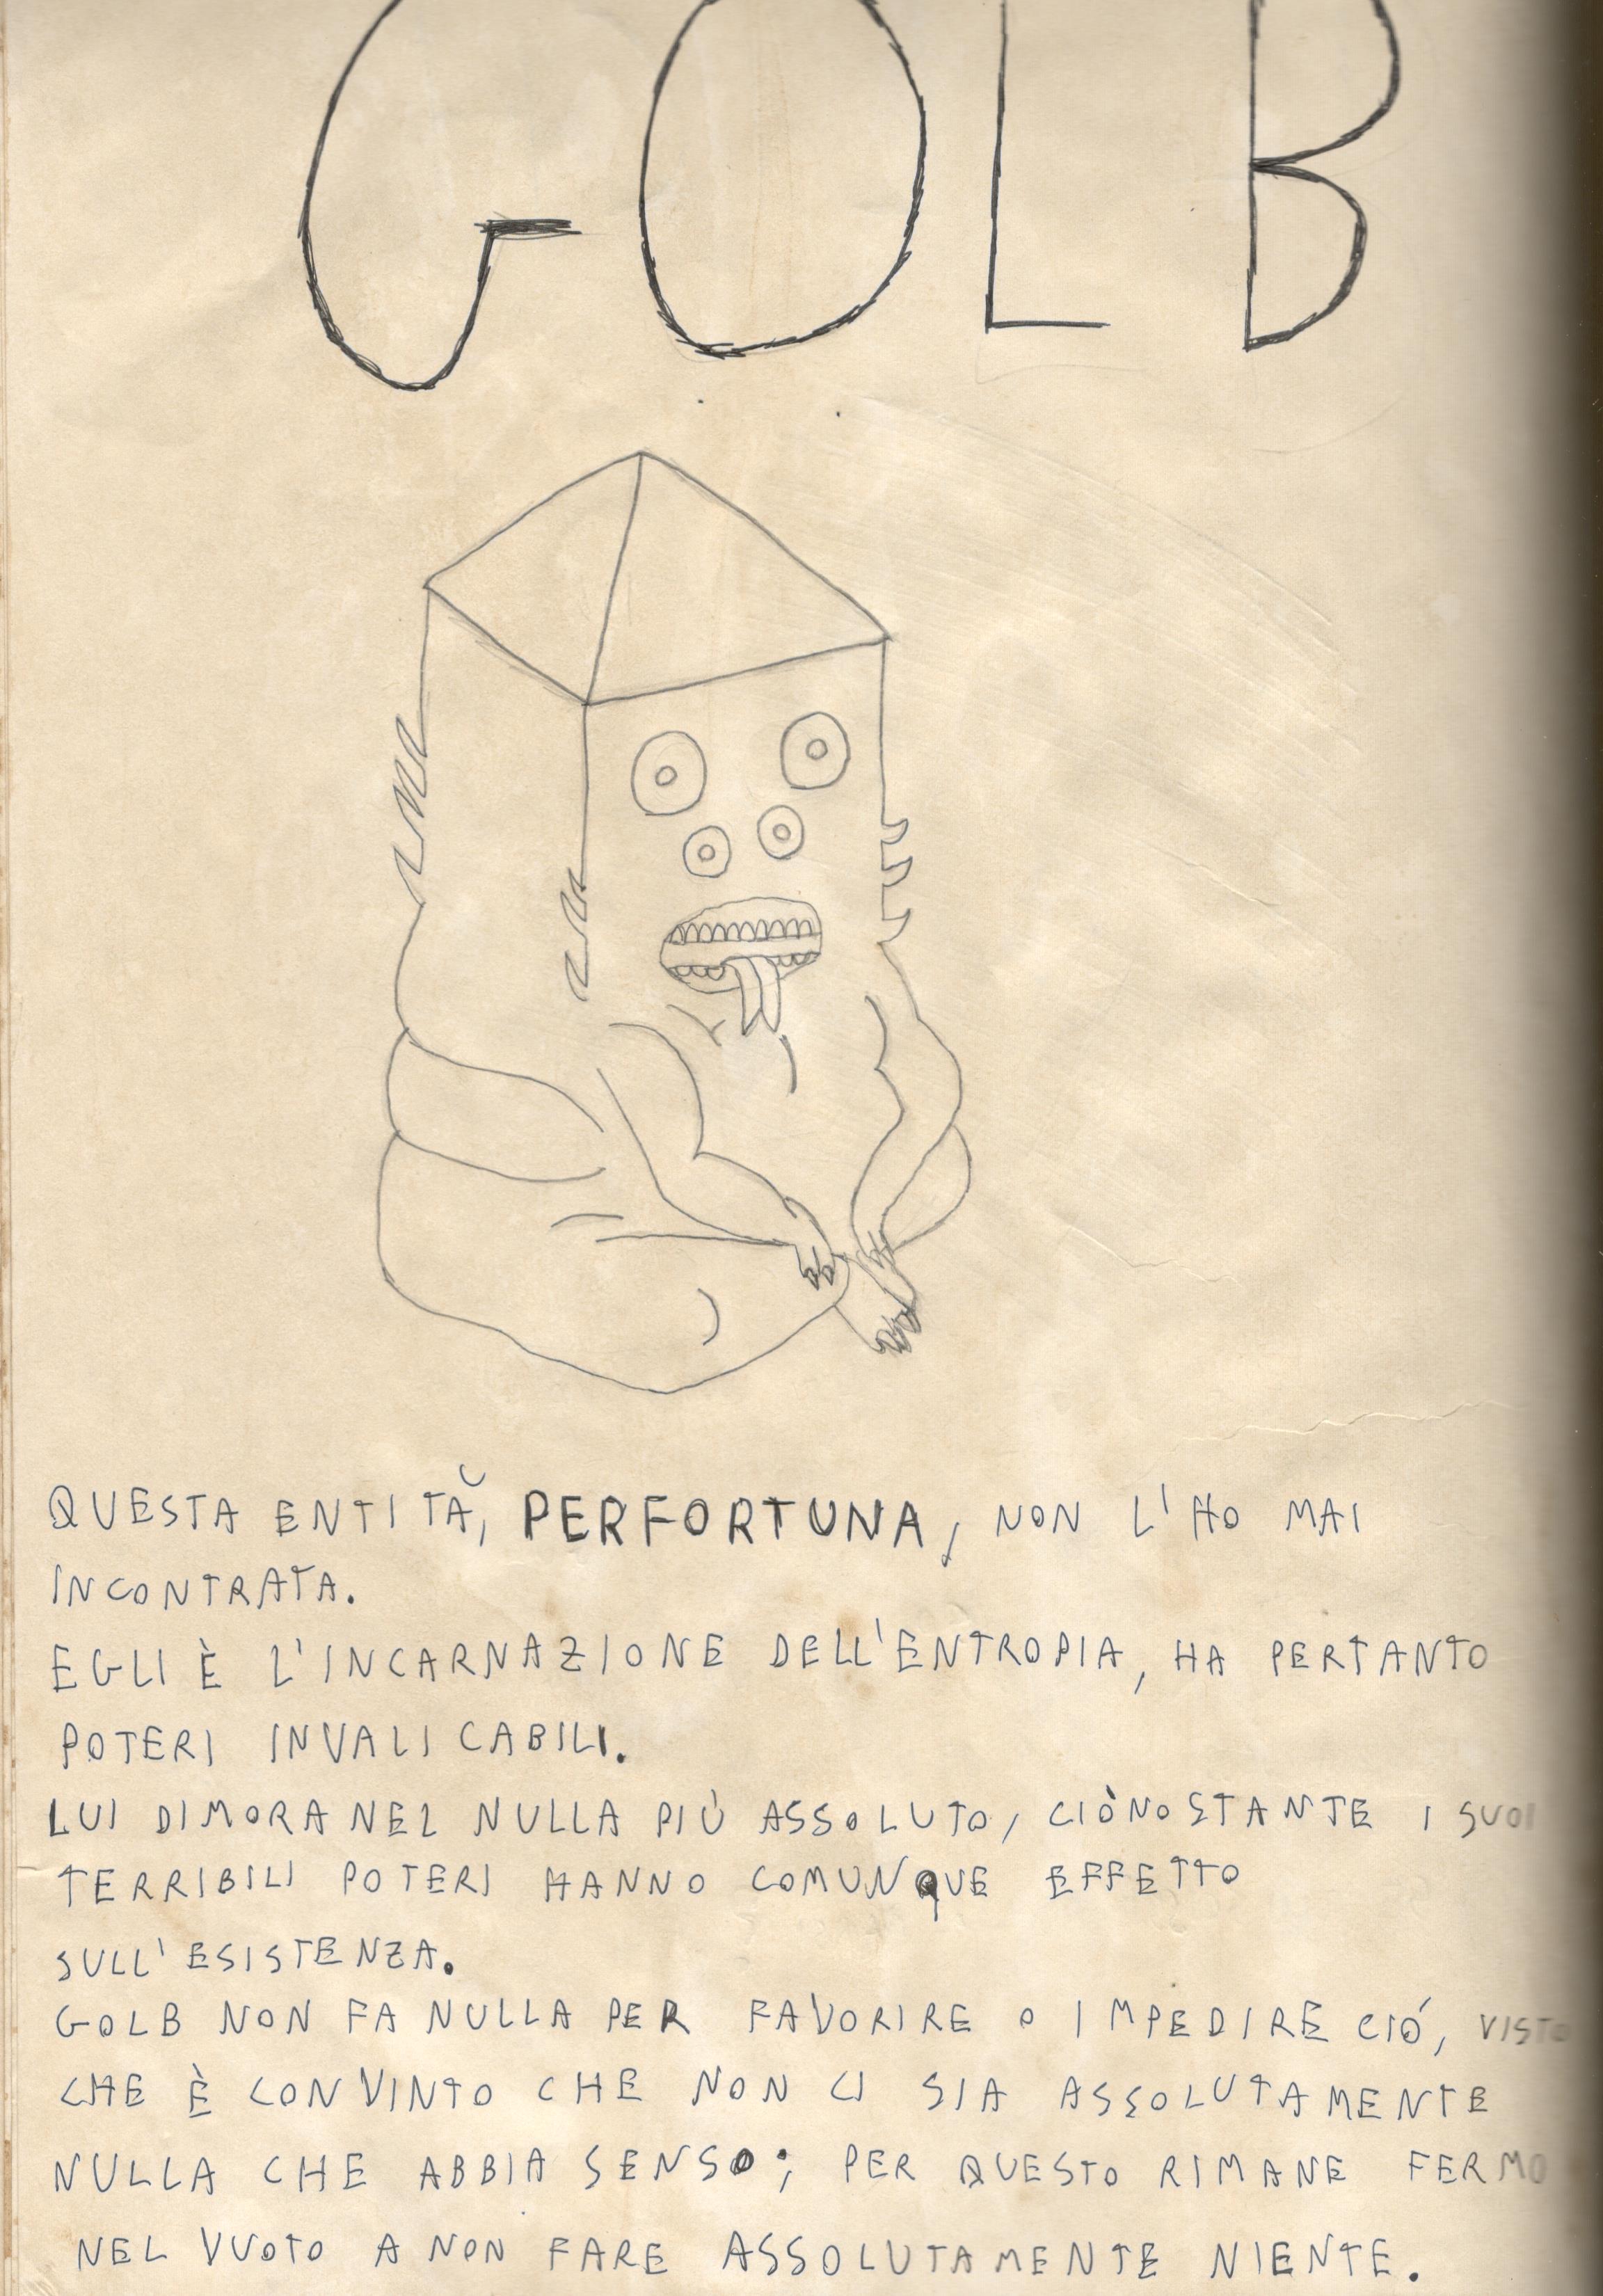 GOLB
QUESTA ENTITÀ, PERFORTUNA, NON L'HO MAI
INCONTRATA.
EGLI È L'INCARNAZIONE DELL'ENTROPIA, HA PERTANTO
POTERI INVALICABILI.
LUI DIMORA NEL NULLA PIÙ ASSOLUTO, CIÒNOSTANTE I SUOI
TERRIBILI POTERI HANNO COMUNQUE EFFETTO
SULL'ESISTENZA.
GOLB NON FA NULLA PER FAVORIRE O IMPEDIRE CIÓ, VISTO
CHE È CONVINTO CHE NON CI SIA ASSOLUTAMENTE
NULLA CHE ABBIA SENSO; PER QUESTO RIMANE FERMO
NEL VUOTO A NON FARE ASSOLUTAMENTE NIENTE.